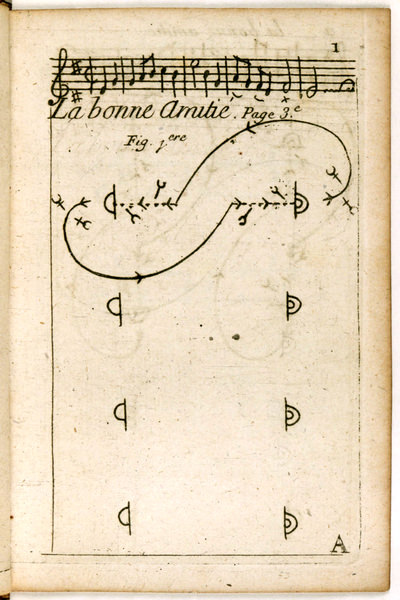 1
La bonne Amitié. Page 3.e
Fig. 1.ere
A